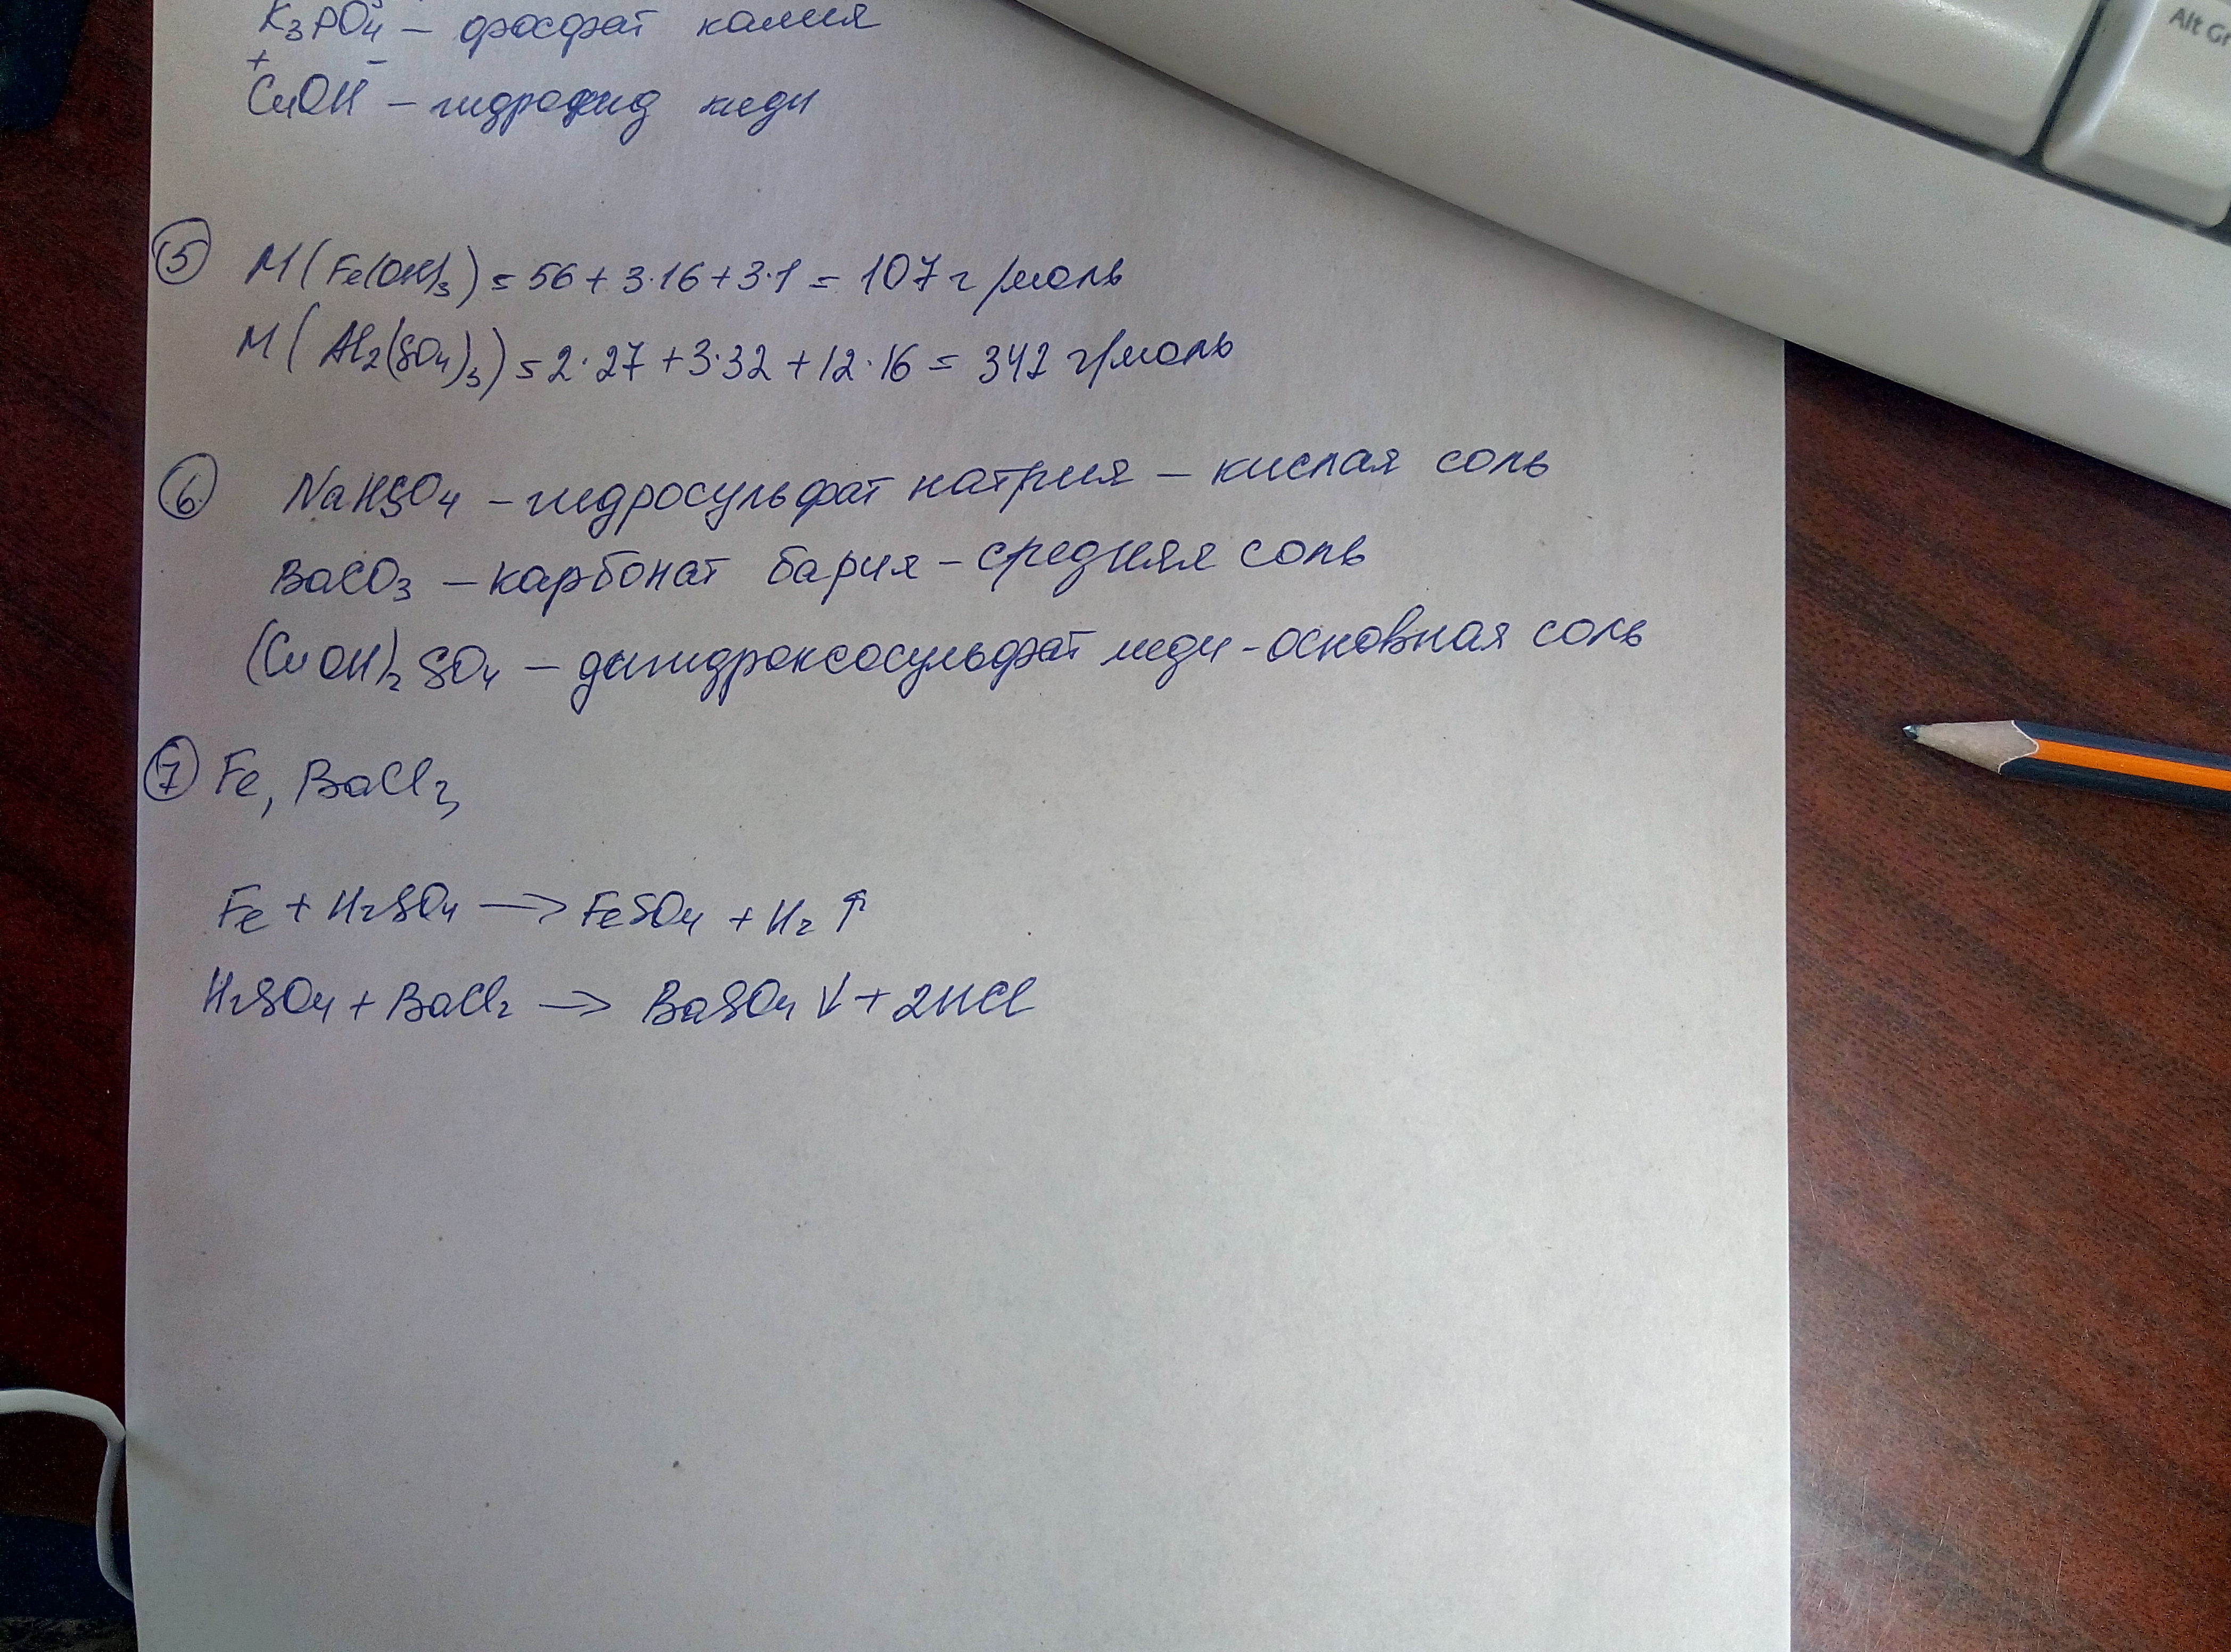 Alt Gr
K₃PO₄ – фосфат калия
+ –
CuOH – гидроксид меди
5 M(Fe(OH)₃) = 56 + 3·16 + 3·1 = 107 г/моль
M(Al₂(SO₄)₃) = 2·27 + 3·32 + 12·16 = 342 г/моль
6. NaHSO₄ – гидросульфат натрия – кислая соль
BaCO₃ – карбонат бария – средняя соль
(CuOH)₂SO₄ – дигидроксосульфат меди – основная соль
7 Fe, BaCl₂,
Fe + H₂SO₄ → FeSO₄ + H₂↑
H₂SO₄ + BaCl₂ → BaSO₄↓ + 2HCl